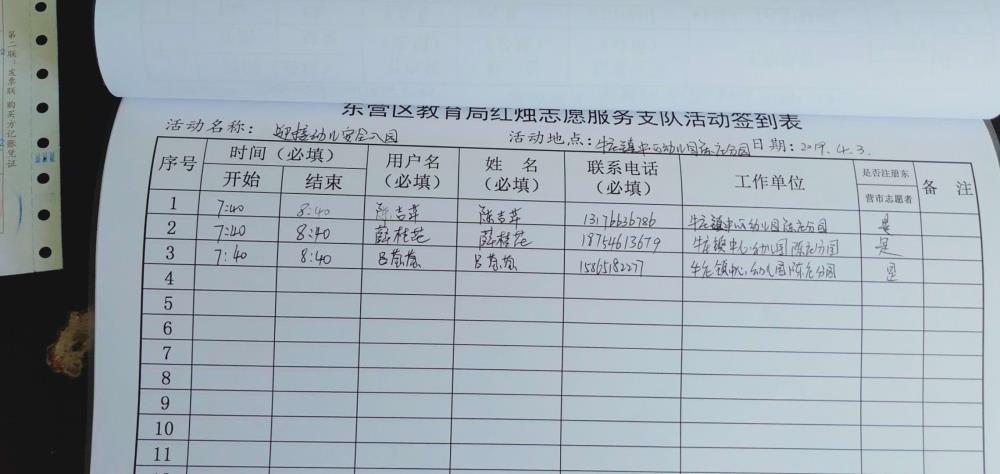 第二联：发票联 购买方记账凭证
东营区教育局红烛志愿服务支队活动签到表
活动名称： 迎接幼儿安全入园 活动地点：牛庄镇中心幼儿园陈庄分园 日期：2019.4.3.
序号 时间（必填） 用户名（必填） 姓 名（必填） 联系电话（必填） 工作单位 是否注册东营市志愿者 备 注
开始 结束
1 7:40 8:40 陈吉萍 陈吉萍 13176636786 牛庄镇中心幼儿园陈庄分园 是
2 7:40 8:40 薛桂花 薛桂花 18754613679 牛庄镇中心幼儿园陈庄分园 是
3 7:40 8:40 15865182277 牛庄镇中心幼儿园陈庄分园 是
4
5
6
7
8
9
10
11